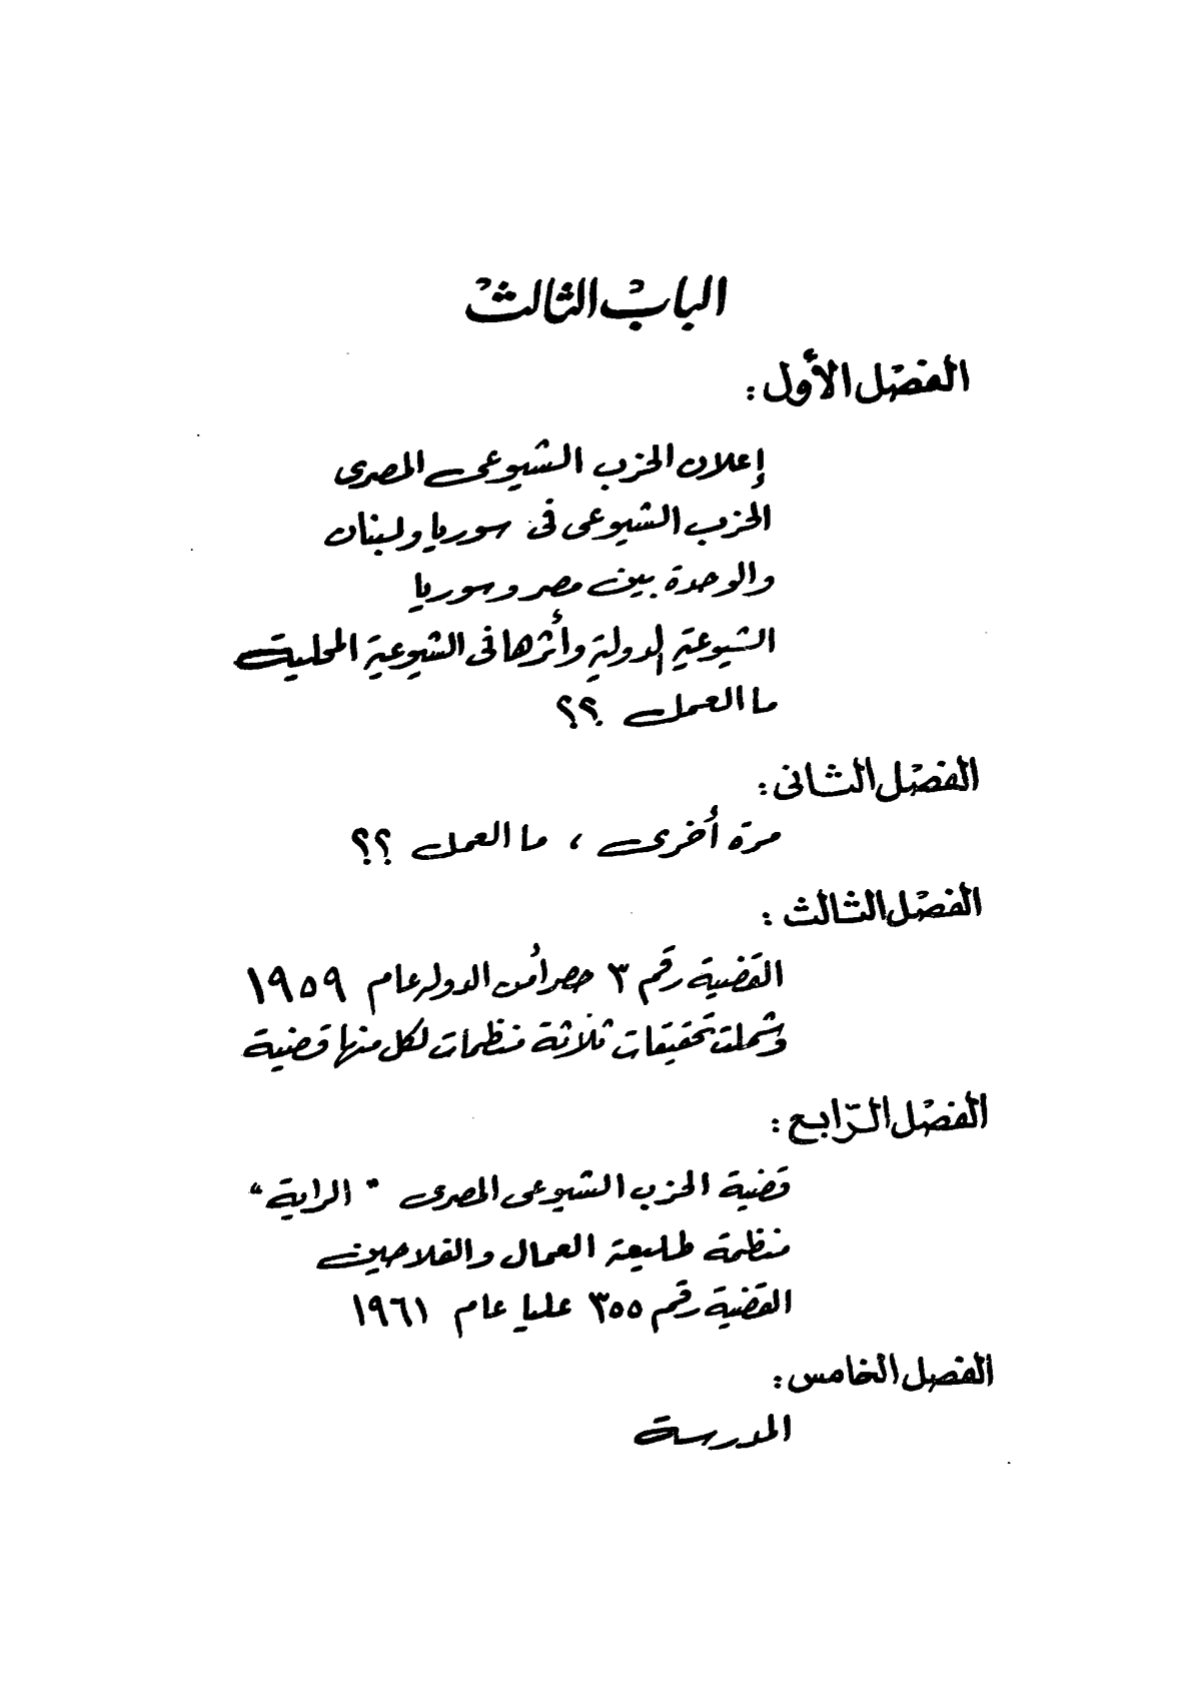 الباب الثالث
الفصل الأول :
إعلان الحزب الشيوعى المصرى
الحزب الشيوعى فى سوريا ولبنان
والوحدة بين مصر وسوريا
الشيوعية الدولية وأثرها فى الشيوعية المحلية
ما العمل ؟؟
الفصل الثانى :
مرة أخرى ، ما العمل ؟؟
الفصل الثالث :
القضية رقم ٣ حصر أمن الدولة عام ١٩٥٩
وشملت تحقيقات ثلاثة منظمات لكل منها قضية
الفصل الرّابع :
قضية الحزب الشيوعى المصرى " الراية "
منظمة طليعة العمال والفلاحين
القضية رقم ٣٥٥ عليا عام ١٩٦١
الفصل الخامس :
المدرسة